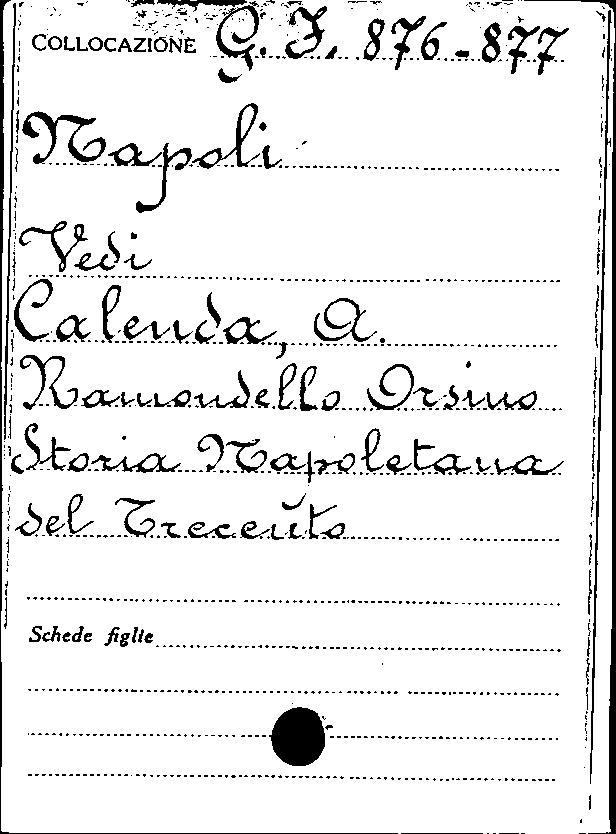 COLLOCAZIONE G. I. 876-877
Napoli
Vedi
Calenda, A.
Ramondello Orsino
Storia Napoletana
del Trecento
Schede figlie